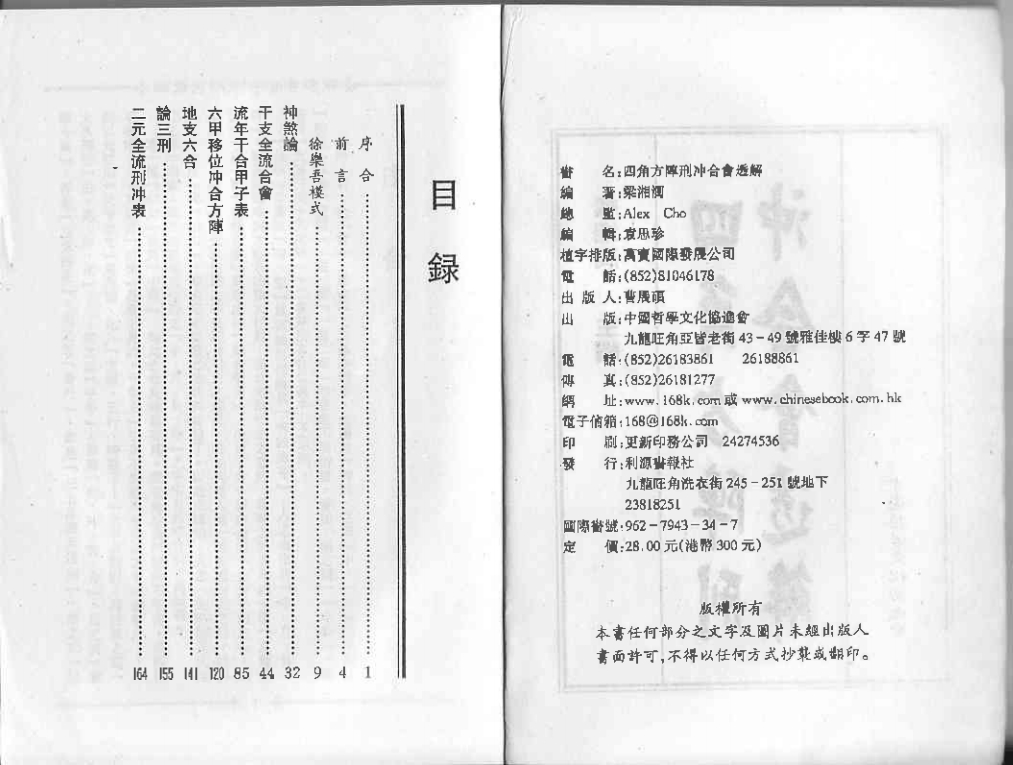 目録
序合 1
前言 4
徐樂吾模式 9
神煞論 32
干支全流合會 44
流年干合甲子表 85
六甲移位冲合方陣 120
地支六合 141
論三刑 155
二元全流刑冲表 164
書 名:四角方陣刑冲合會透解
編 著:梁湘潤
總 監:Alex Cho
編 輯:袁思珍
植字排版:萬寶國際發展公司
電 話:(852)81046178
出 版 人:曹展碩
出 版:中國哲學文化協進會
九龍旺角亞皆老街 43-49 號雅佳樓 6 字 47 號
電 話:(852)26183861 26188861
傳 真:(852)26181277
網 址:www.168k.com 或 www.chinesebook.com.hk
電子信箱:168@168k.com
印 刷:更新印務公司 24274536
發 行:利源書報社
九龍旺角洗衣街 245-251 號地下
23818251
國際書號:962-7943-34-7
定 價:28.00 元(港幣 300 元)
版權所有
本書任何部分之文字及圖片未經出版人
書面許可,不得以任何方式抄襲或翻印。